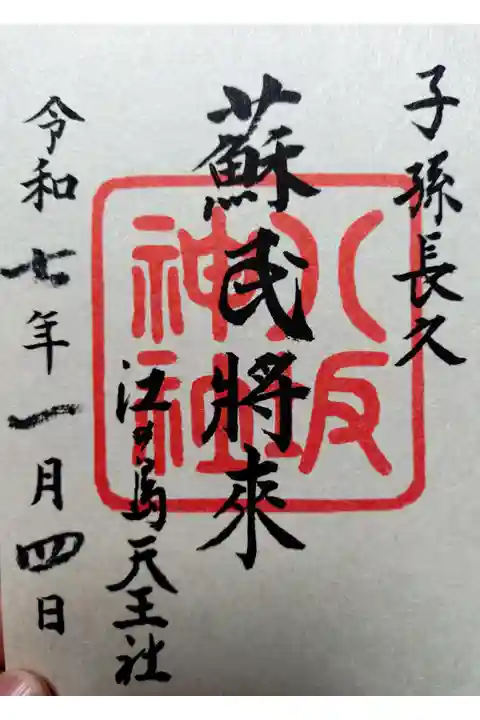 子孫長久
蘇民將來
江の島天王社
令和七年一月四日
八坂
神社